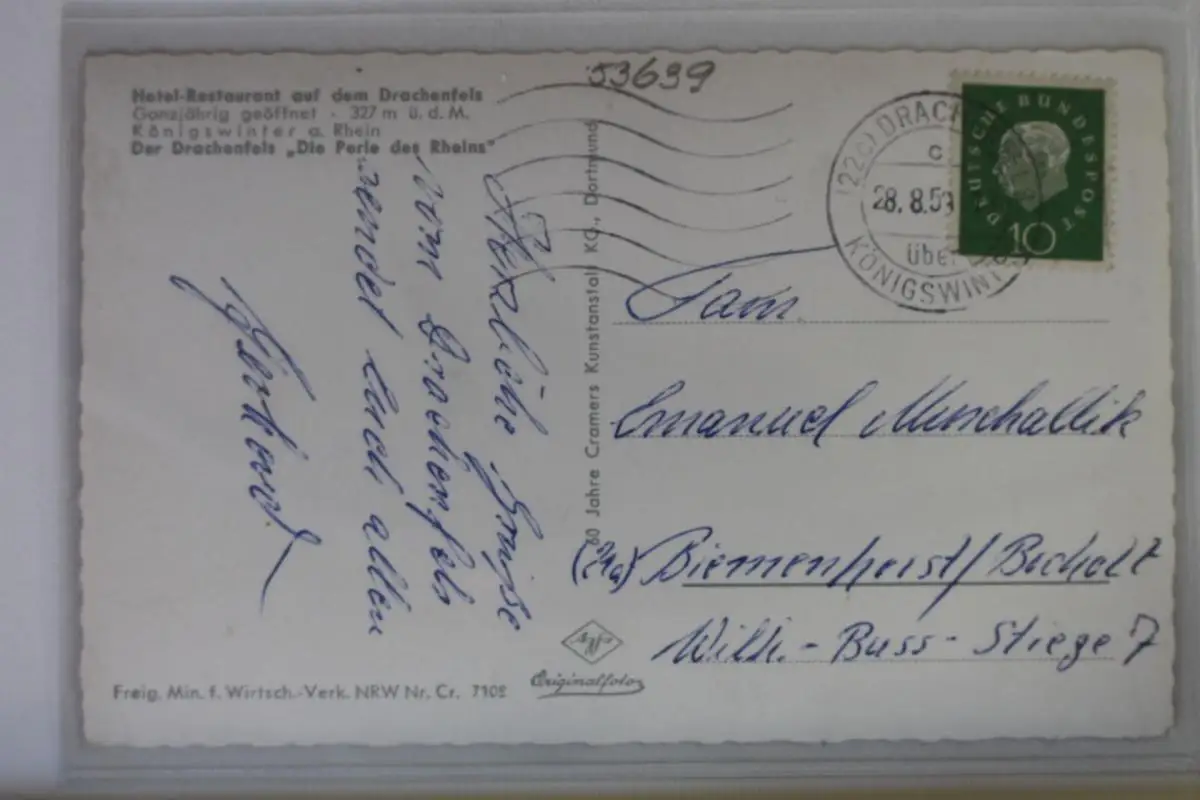 53639
Hotel-Restaurant auf dem Drachenfels
Ganzjährig geöffnet - 327 m ü. d. M.
Königswinter a. Rhein
Der Drachenfels „Die Perle des Rheins"
Herzliche Grüsse
vom Drachenfels
sendet Euch allen
60 Jahre Cramers Kunstanstalt KG., Dortmund
(22c) DRACH
c
28.8.59
über
KÖNIGSWINT
DEUTSCHE BUNDESPOST
10
Fam.
Emanuel Muschallik
Biemenhorst/Bocholt
Wilh.-Buss-Stiege 7
Agfa
Originalfoto
Freig. Min. f. Wirtsch.-Verk. NRW Nr. Cr. 7102